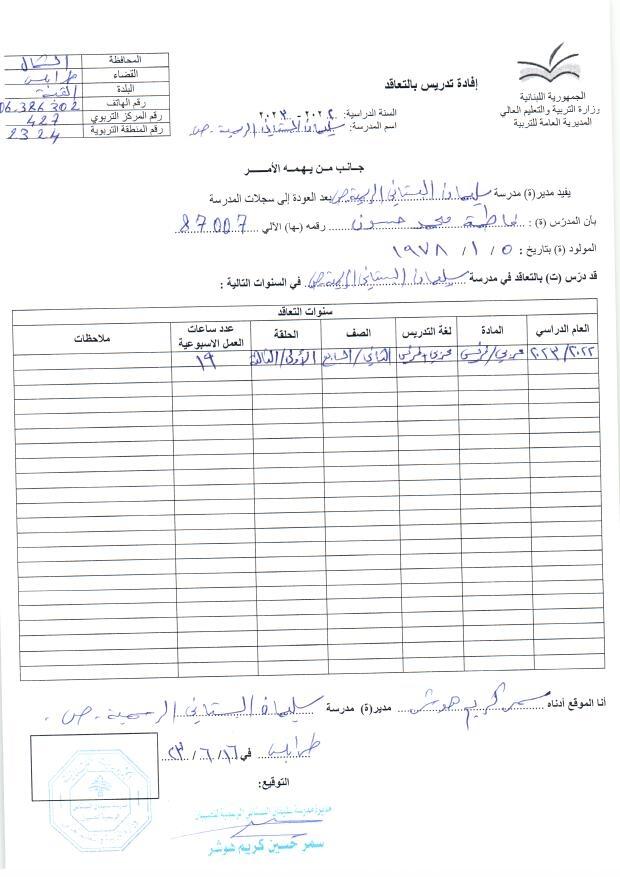 الجمهورية اللبنانية
وزارة التربية والتعليم العالي
المديرية العامة للتربية
إفادة تدريس بالتعاقد
السنة الدراسية: ٢٠٢٢ - ٢٠٢٣
اسم المدرسة: سليمان البستاني الرسمية - ص
المحافظة الشمال
القضاء طرابلس
البلدة القبة
رقم الهاتف 06.386 302
رقم المركز التربوي 427
رقم المنطقة التربوية 2324
جانب من يهمه الأمر
يفيد مدير(ة) مدرسة سليمان البستاني الرسمية ص بعد العودة إلى سجلات المدرسة
بأن المدرّس (ة) : فاطمة محمد حسون رقمه (ها) الآلي 87007
المولود (ة) بتاريخ : ٥ / ١ / ١٩٧٨
قد درّس (ت) بالتعاقد في مدرسة سليمان البستاني الرسمية ص في السنوات التالية :
سنوات التعاقد
العام الدراسي المادة لغة التدريس الصف الحلقة عدد ساعات العمل الاسبوعية ملاحظات
٢٠٢٢/٢٠٢٣ عربي/فرنسي عربي وفرنسي الثاني/السابع الأولى/الثالثة ١٩
أنا الموقع أدناه سمر كريم هوشر مدير(ة) مدرسة سليمان البستاني الرسمية - ص
طرابلس في ١٦ / ٦ / ٢٣
التوقيع:
مديرة مدرسة سليمان البستاني الرسمية للصبيان
سمر حسين كريم هوشر